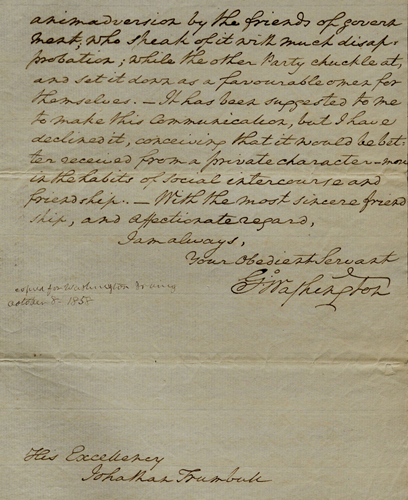 animadversion by the friends of govern
ment; who speak of it with much disap-
probation; while the other Party chuckle at,
and set it down as a favourable omen for
themselves. — It has been suggested to me
to make this Communication, but I have
declined it, conceiving that it would be bet-
ter received from a private character – more
in the habits of social intercourse and
friendship. — With the most sincere friend
ship, and Affectionate regard,
I am always,
Your Obedient Servant
Go: Washington
copied for Washington Irving
October 8. 1858
His Excellency
Jonathan Trumbull